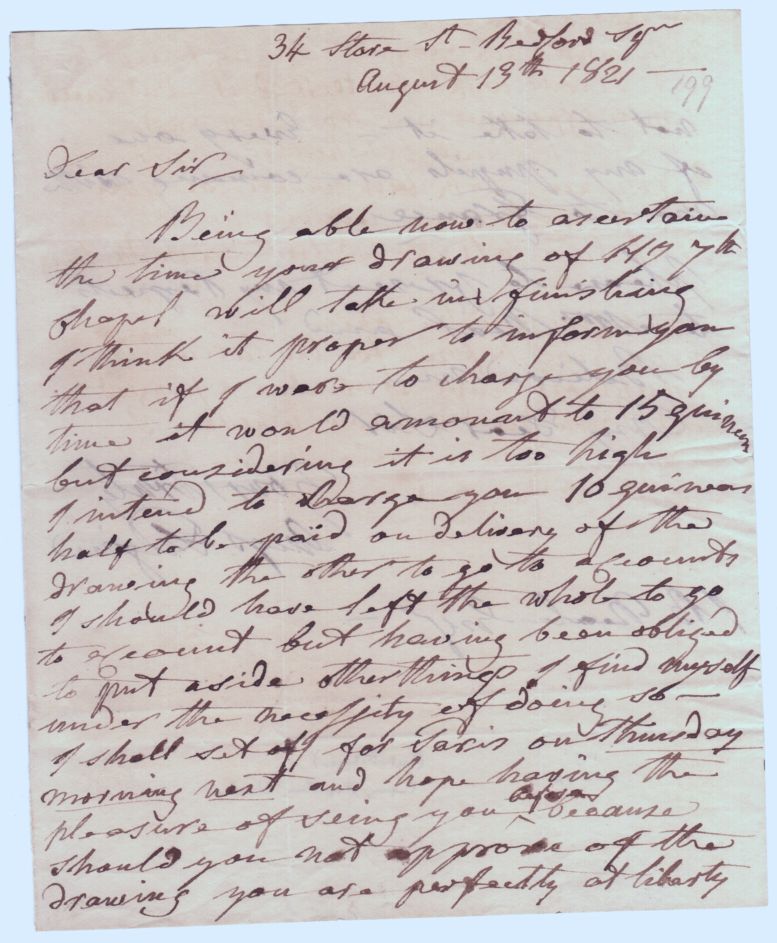 34 Store St - Bedford Sqr
August 13th 1821 -
199
Dear Sir
Being able now to ascertain
the time your drawing of H 7 7th
chapel will take in finishing
I think it proper to inform you
that if I were to charge you by
time it would amount to 15 guineas
but considering it is too high
I intend to charge you 10 guineas
half to be paid on delivery of the
drawing the other to go to accounts
I should have left the whole to go
to account but having been obliged
to put aside other things I find myself
under the necessity of doing so -
I shall set off for Paris on Thursday
morning next and hope having the
pleasure of seing you before because
should you not approve of the
drawing you are perfectly at liberty